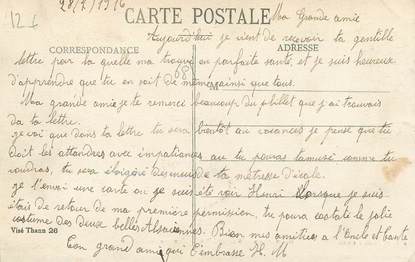 12 £
28/7/1916
CARTE POSTALE
Ma Grande amie
CORRESPONDANCE
ADRESSE
Aujourd'hui je vient de recevoir ta gentille
lettre par la quelle ma trouve en parfaite santé, et je suis heureux
d'apprendre que tu en soit de Même ainsi que tous.
Ma grande amie je te remerci beaucoup du billet que j'ai trouvais
da ta lettre.
je voi que dans ta lettre tu sera bientôt au vacances je pense que tu
doit les attandres avec impatiance au tu pouras tamusé comme tu
voudras, tu sera éloigéré des murs de la métresse d'école.
je t'envoi une carte ou je suis été voir Henri lorsque je suis
étais de retour de ma première permission, tu poura costaté le jolie
costume des deux belles Alsaciennes. Bien mes amitiés a l'Oncle et tante
Ton grand ami qui t'embrasse H. M
Visé Thann 26